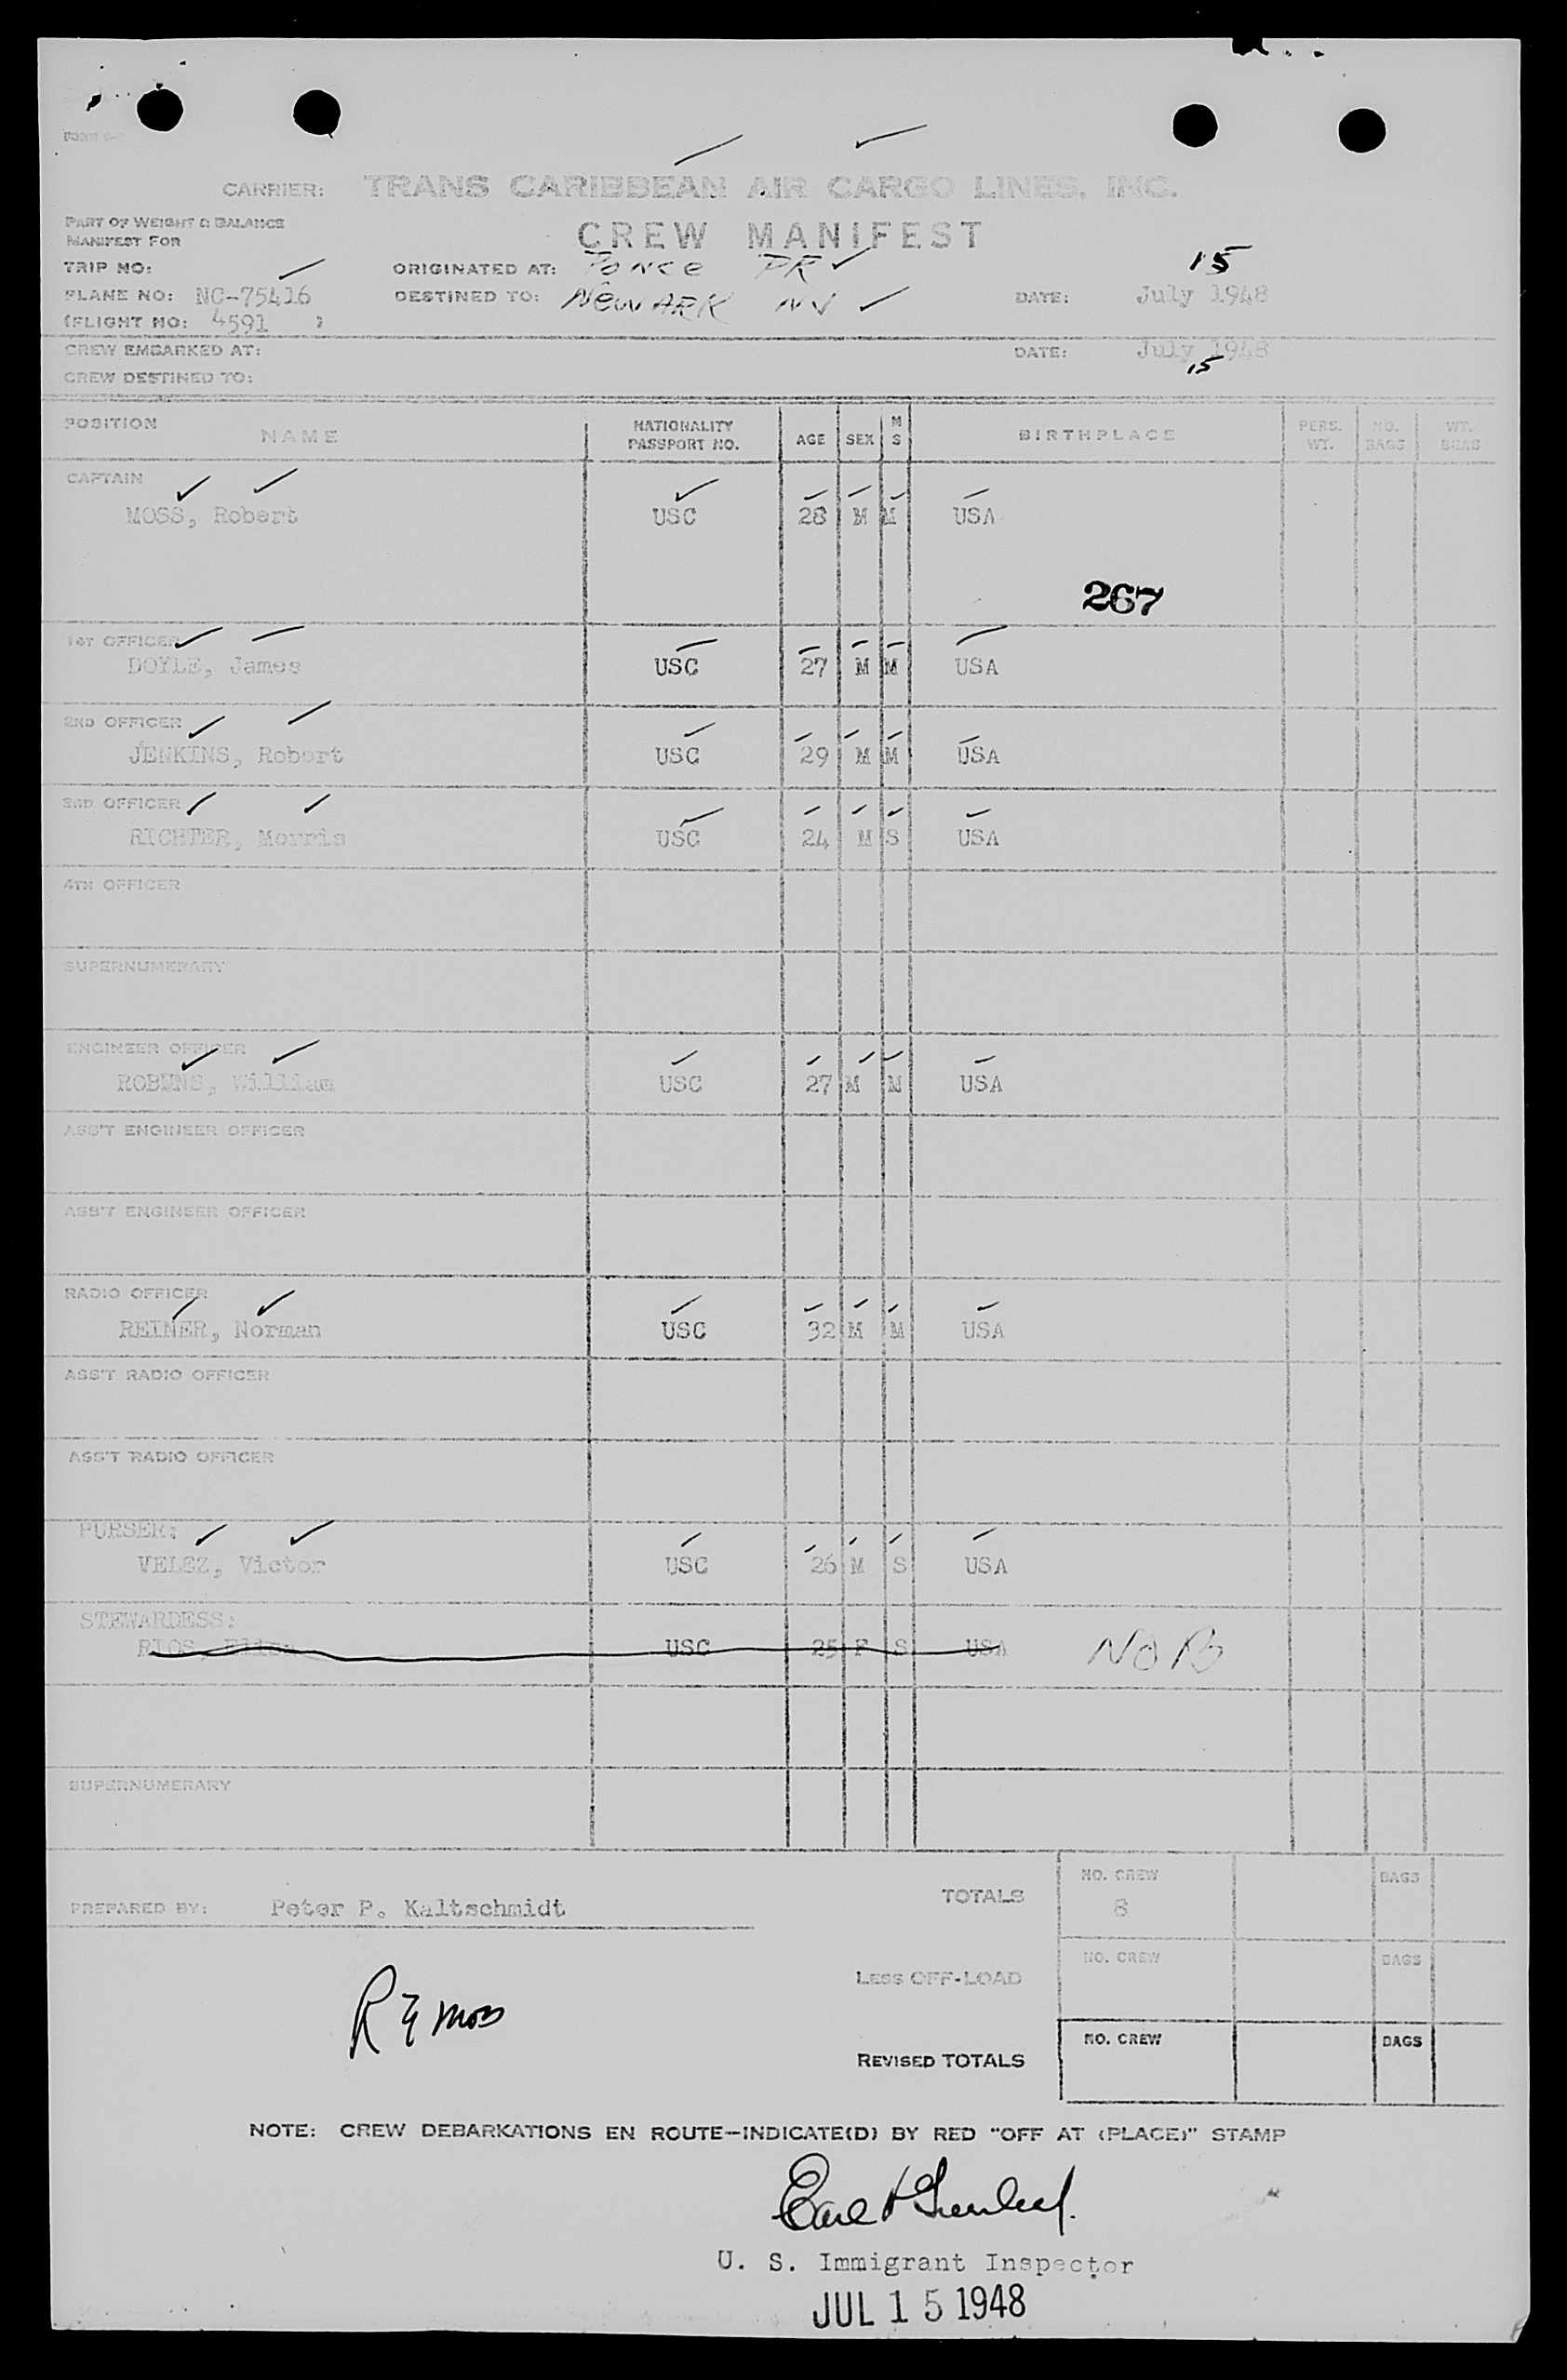 CARRIER: TRANS CARIBBEAN AIR CARGO LINES, INC.
PART OF WEIGHT & BALANCE
MANIFEST FOR
CREW MANIFEST
TRIP NO:
ORIGINATED AT: Ponce PR
15
PLANE NO: NC-75416
DESTINED TO: NEWARK NJ
DATE: July 1948
(FLIGHT NO: 4591 )
CREW EMBARKED AT:
DATE: July 1948
15
CREW DESTINED TO:
POSITION NAME NATIONALITY PASSPORT NO. AGE SEX M S BIRTHPLACE PERS. WT. NO. BAGS WT. BAGS
CAPTAIN
MOSS, Robert USC 28 M M USA
267
1ST OFFICER
DOYLE, James USC 27 M M USA
2ND OFFICER
JENKINS, Robert USC 29 M M USA
3RD OFFICER
RICHTER, Morris USC 24 M S USA
4TH OFFICER
SUPERNUMERARY
ENGINEER OFFICER
ROBUNS, William USC 27 M M USA
ASS'T ENGINEER OFFICER
ASS'T ENGINEER OFFICER
RADIO OFFICER
REINER, Norman USC 32 M M USA
ASS'T RADIO OFFICER
ASS'T RADIO OFFICER
PURSER:
VELEZ, Victor USC 26 M S USA
STEWARDESS:
RIOS, USC 25 F S USA NOB
SUPERNUMERARY
PREPARED BY: Peter P. Kaltschmidt
TOTALS NO. CREW 8 BAGS
LESS OFF-LOAD NO. CREW BAGS
R E Moss
REVISED TOTALS NO. CREW BAGS
NOTE: CREW DEBARKATIONS EN ROUTE—INDICATE(D) BY RED "OFF AT (PLACE)" STAMP
U. S. Immigrant Inspector
JUL 15 1948